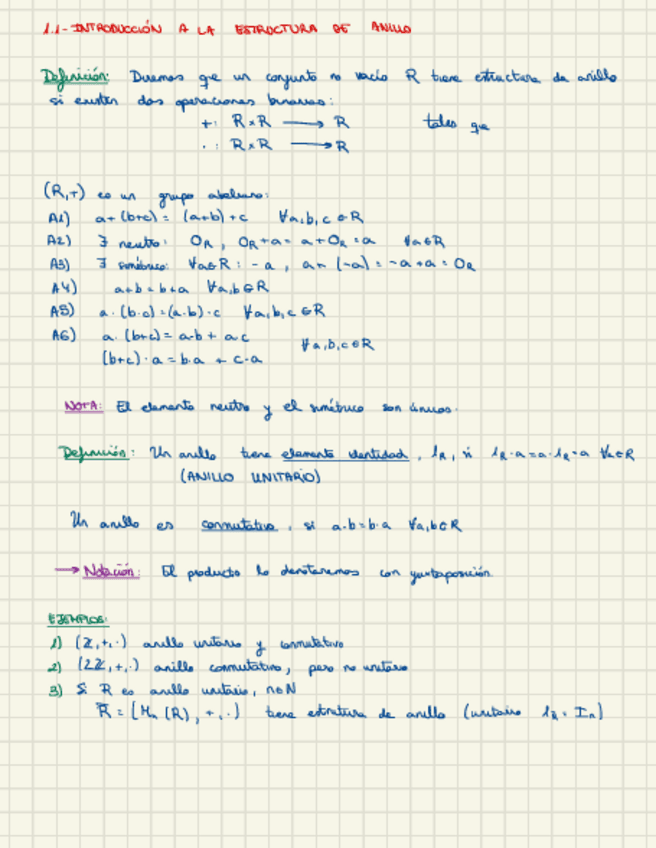 1.1-INTRODUCCIÓN A LA ESTRUCTURA DE ANILLO
Definición: Diremos que un conjunto no vacío R tiene estructura de anillo
si existen dos operaciones binarias:
+: R×R ⟶ R tales que
· : R×R ⟶ R
(R,+) es un grupo abeliano:
A1) a+(b+c) = (a+b)+c ∀a,b,c ∈ R
A2) ∃ neutro: 0_R, 0_R+a = a+0_R = a ∀a∈R
A3) ∃ simétrico: ∀a∈R : -a, a+(-a) = -a+a = 0_R
A4) a+b = b+a ∀a,b∈R
A5) a·(b·c) = (a·b)·c ∀a,b,c ∈R
A6) a·(b+c) = a·b + a·c ∀a,b,c∈R
(b+c)·a = b·a + c·a
NOTA: El elemento neutro y el simétrico son únicos.
Definición: Un anillo tiene elemento identidad, 1_R, si 1_R·a = a·1_R = a ∀a∈R
(ANILLO UNITARIO)
Un anillo es conmutativo, si a·b = b·a ∀a,b∈R
⟶ Notación: El producto lo denotaremos con yuxtaposición
EJEMPLOS:
1) (ℤ,+,·) anillo unitario y conmutativo
2) (2ℤ,+,·) anillo conmutativo, pero no unitario
3) Si R es anillo unitario, n∈ℕ
R̄ = (M_n(R), +, ·) tiene estructura de anillo (unitario 1_R̄ = I_n)